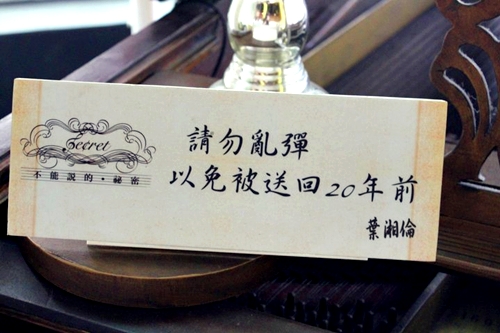 Secret
不能說的·祕密
請勿亂彈
以免被送回20年前
葉湘倫